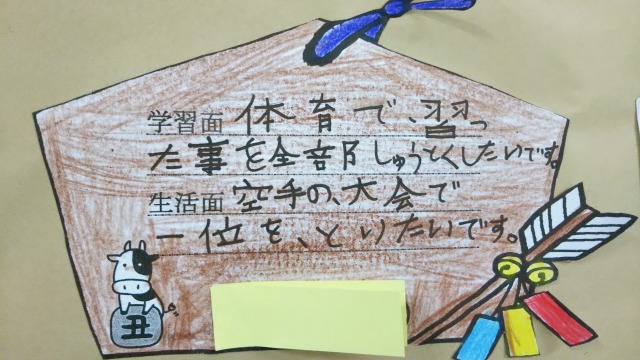 学習面 体育で、習っ
た事を全部しゅうとくしたいです。
生活面 空手の、大会で
一位を、とりたいです。
丑